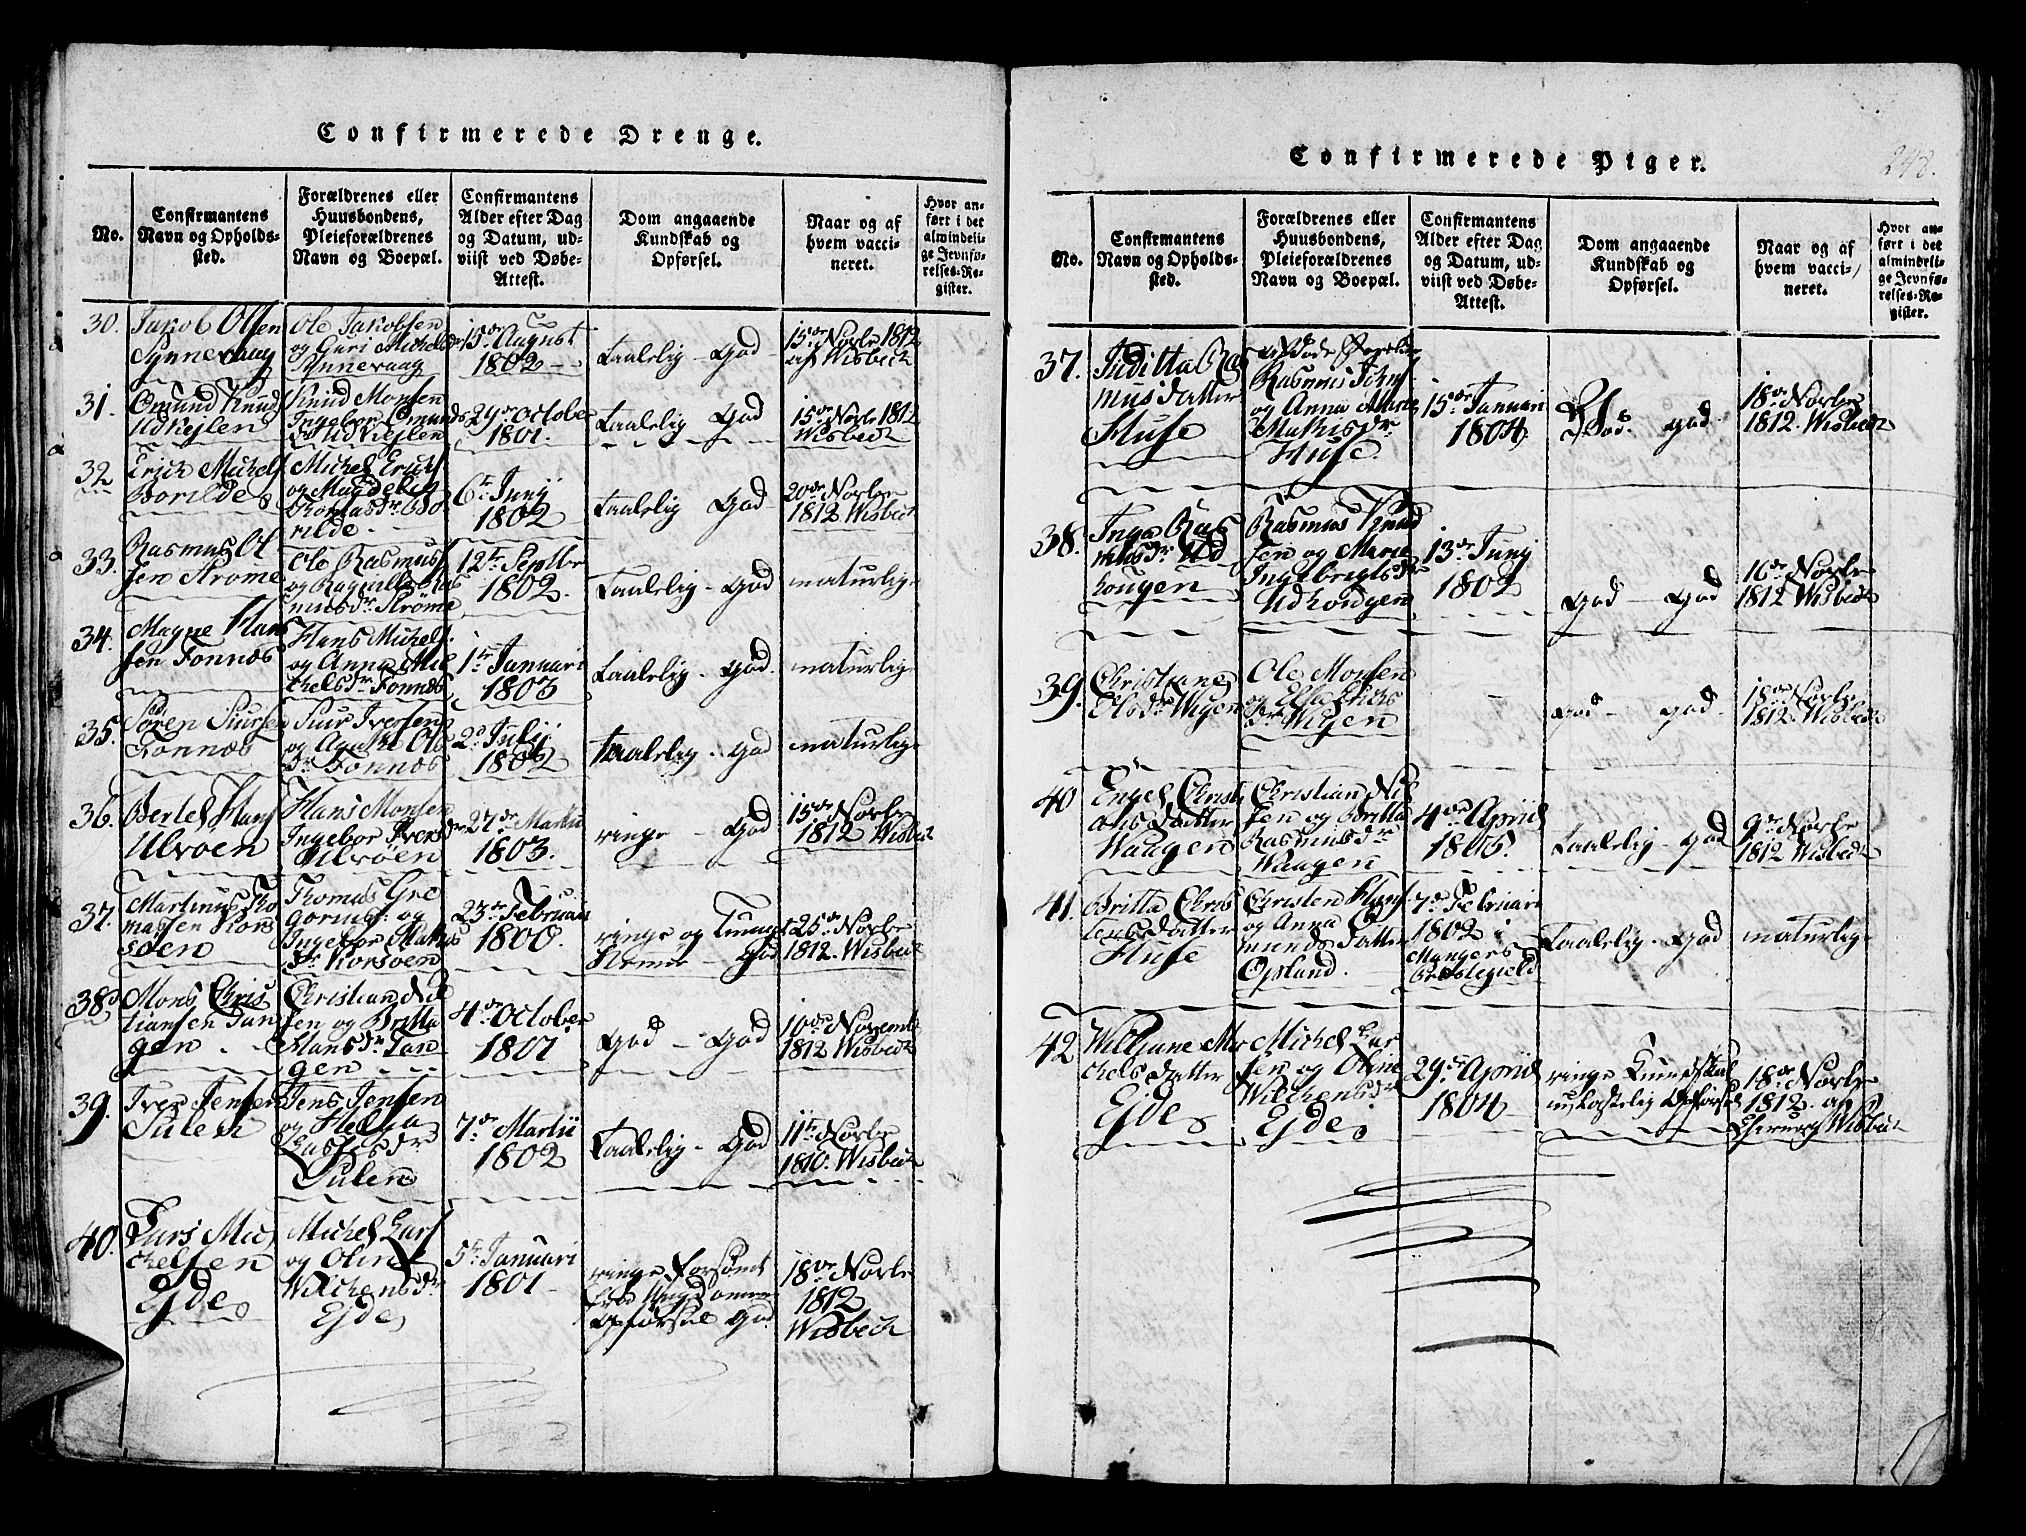 Confirmerede Drenge.
No.
Confirmantens
Navn og Opholds-
sted.
Forældrenes eller
Huusbondens,
Pleieforældrenes
Navn og Boepæl.
Confirmantens
Alder efter Dag
og Datum, ud-
viist ved Døbe-
Attest.
Dom angaaende
Kundskab og
Opførsel.
Naar og af
hvem vacci-
neret.
Hvor an-
ført i det
almindeli-
ge Jevnfø-
relses-Re-
gister.
30.
Jakob Olsen
Synnevaag
Ole Jakobsen
og Guri Michelsdr
Synnevaag
15de August
1802
taalelig - God
15de Novbr 1812
af Wisbech
31.
Omund Knuds
Udkejlen
Knud Monsen
Ingebor Omunds
dr Udkejlen
29de October
1801.
taalelig God
15de Novbr 1812
Wisbech
32
Erich Michels
Borilde
Michel Erichs
og Magdelen
Thomasdr Bo
rilde
6te Junij
1802
taalelig God
20de Novbr
1812 Wisbech
33.
Rasmus Ol
sen Strøme
Ole Rasmuss
og Ragnille Ras
musdr Strøme
12te Septbr
1802.
Taalelig - God
naturlige
34.
Magne Han
sen Fonnæs
Hans Michels.
og Anna Mic
helsdr Fonnæs
1te Januari
1803
taalelig - God.
naturlige
35.
Søren Siursen
Fonnæs
Siur Iversen
og Agathe Ols
dr Fonnæs
2d Julij
1802
taalelig - God
naturlige
36.
Bertel Hans
Ulvøen
Hans Monsen
Ingebor Iversdr
Ulvøen
27de Martii
1803.
ringe - God
15de Novbr
1812 Wisbech
37.
Martinus Tho
massen Kors
øen
Thomas Gre
goriuss: og
Ingebor Mathis
dr Korsøen
23de Februari
1800.
ringe og
God
25de Novbr
1812. Wisbech
38
Mons Chris
tiansen Tan
gen
Christian Nil
sen og Britta
Hansdr Tan
gen
4de October
1801
God - God
10de Novemb
1812 Wisbech
39.
Iver Jensen
Sulen
Jens Jensen
og Helga
Lassesdr
Sulen
7de Martii
1802
taalelig - God
11te Novbr
1810. Wisbech
40.
Lars Mic
helsen
Ejde
Michel Lars
og Oline
Wilchensdr
Ejde
5te Januari
1801
ringe forsømt
fra Ungdommen
Opførsel God
18de Novbr
1812
Wisbech
Confirmerede Piger.
248.
No.
Confirmantens
Navn og Opholds-
sted.
Forældrenes eller
Huusbondens,
Pleieforældrenes
Navn og Boepæl.
Confirmantens
Alder efter Dag
og Datum, ud-
viist ved Døbe-
Attest.
Dom angaaende
Kundskab og
Opførsel.
Naar og af
hvem vacci-
neret.
Hvor an-
ført i det
almindeli-
ge Jevnfø-
relses-Re-
gister.
37.
Juditta Ras
musdatter
Huse
Rasmus Johns
og Anna Marie
Mathisdr
Huse.
15de Januari
1804
God. God.
18de Novbr
1812. Wisbech
38.
Inga Ras
musdr Ud
kougen
Rasmus Knud
sen og Marie
Ingebrigtsdr
Udkougen
13de Junij
1802
God - God
16de Novbr
1812 Wisbech
39.
Christiane
Olsdr Wigen
Ole Monsen
og Elsa Erichs
dr Wigen
God - God
18de Novbr
1812 Wisbech
40
Engel Christi
ans Datter
Waagen
Christian Nil
sen og Britta
Rasmusdr
Waagen
4de April
1805.
taalelig - God
9de Novbr
1812 Wisbech
41.
Britta Chris
tensdatter
Huse
Christen Hans
og Anna
munds Datter
Opsland.
7de Februari
1802 i
Mangers
Præstegield
taalelig - God
naturlige
42
Wilhjane Mic
helsdatter
Ejde
Michel Lar
sen og Oline
Wilchensdr
Ejde
29de April
1804
ringe Kundskab
ulastelig Opførsel
18de Novbr
1812. af
Wisbech